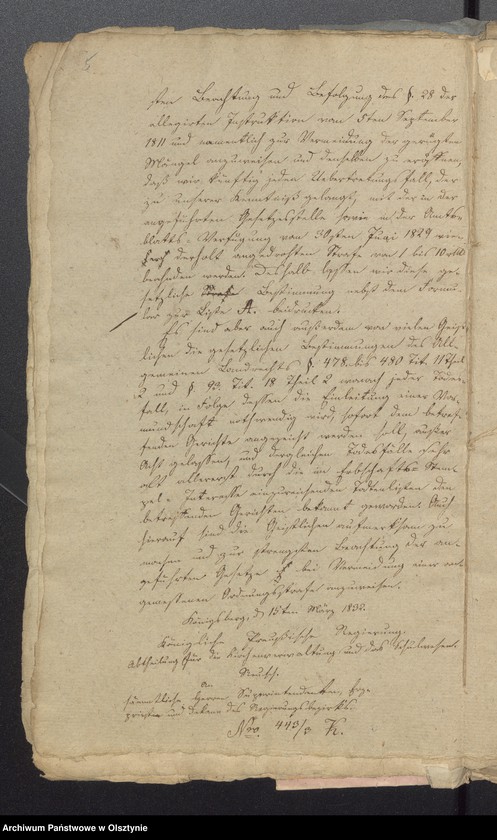 5
sten Beachtung und Befolgung des §. 28 der
allegirten Instruktion vom 5ten September
1811 und namentlich zur Vermeidung der gerügten
Mängel anzuweisen und denselben zu eröffnen,
daß wir künftig jeden Uebertretungsfall, der
zu unserer Kenntniß gelangt, mit der in der
angeführten Gesetzesstelle sowie in der Amts-
blatts-Verfügung vom 30sten Juni 1829
derholt angedrohten Strafe von 1 bis 10 rtl
werden. Deshalb lassen wir diese ge-
setzliche Bestimmung nebst dem Formu-
lar zur Liste A. bedrucken.
Es sind aber auch außerdem von vielen Geist-
lichen die gesetzlichen Bestimmungen des All-
gemeinen Landrechts §. 478. bis 480 Tit. 11 Theil
2 und §. 92. Tit. 18 Theil 2 wonach jeder Todes-
fall, in Folge dessen die Einleitung einer Vor-
mundschaft nothwendig wird, sofort dem betref-
fenden Gerichte angezeigt werden soll, außer
Acht gelassen, und dergleichen Todesfälle sehr
oft allererst durch die im Erbschafts-Stem-
pel-Interesse einzureichenden Todtenlisten den
betreffenden Gerichten bekannt geworden. Auch
hierauf sind die Geistlichen aufmerksam zu
machen und zur strengsten Beachtung der an-
geführten Gesetze bei Vermeidung einer an-
gemessenen Ordnungsstrafe anzuweisen.
Königsberg, d 15ten März 1832.
Königliche Preußische Regierung.
Abtheilung für die Kirchenverwaltung und das Schulwesen.
An
sämmtliche Herren Superintendenten, Erz-
priester und Dekane des Regierungsbezirks.
Nro. 443/3 K.
Archiwum Państwowe w Olsztynie